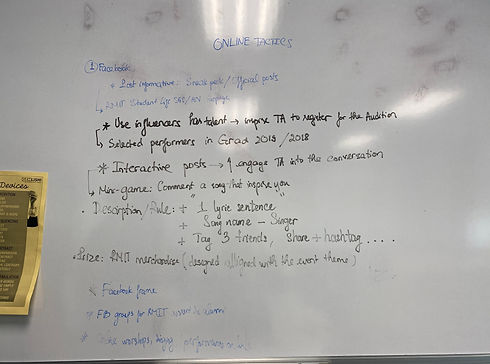 ONLINE TACTICS
① Facebook
* Post informative: Sneak peek / Official posts
↳ RMIT Student Life SGS/HN
* Use influencers has talent → inspire TA to register for the Audition
↳ Selected performers in Grad 2019 / 2018
* Interactive posts → ↑ engage TA into the conversation
↳ Mini-game: Comment a song that inspire you
• Description / Rule: + "1 lyric sentence"
+ Song name - Singer
+ Tag 3 friends, share + hashtag ....
• Prize: RMIT merchandise (designed alligned with the event theme)
* Facebook frame
* FB groups for RMIT
* performers
Devices